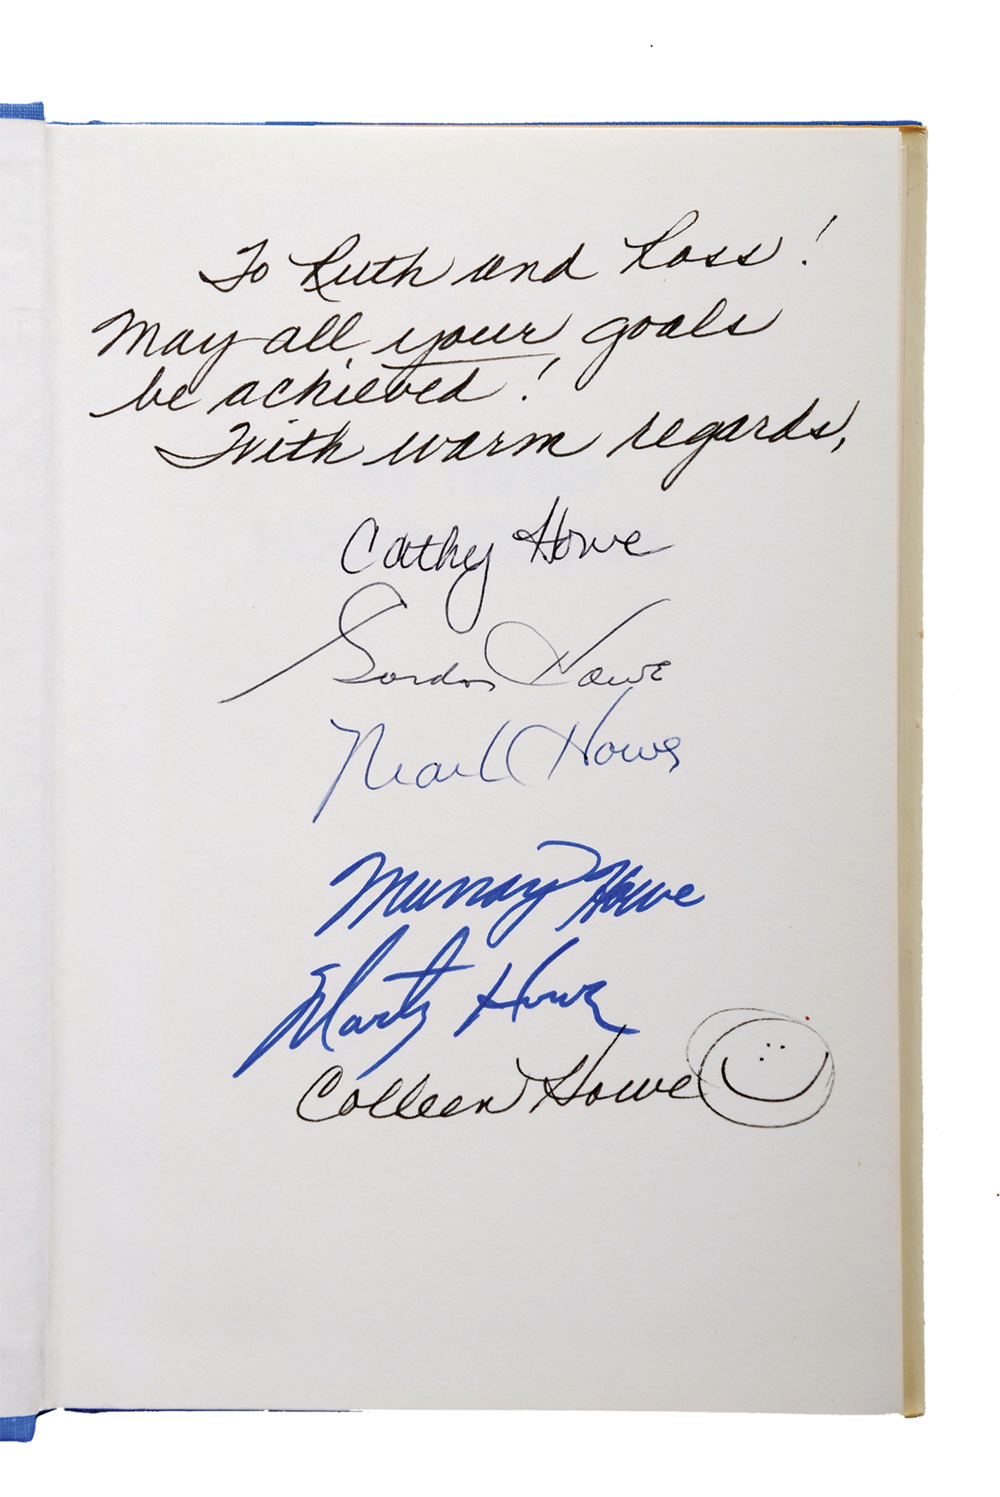 To Ruth and Ross!
May all your goals
be achieved!
With warm regards,
Cathy Howe
Gordon Howe
Mark Howe
Murray Howe
Marty Howe
Colleen Howe